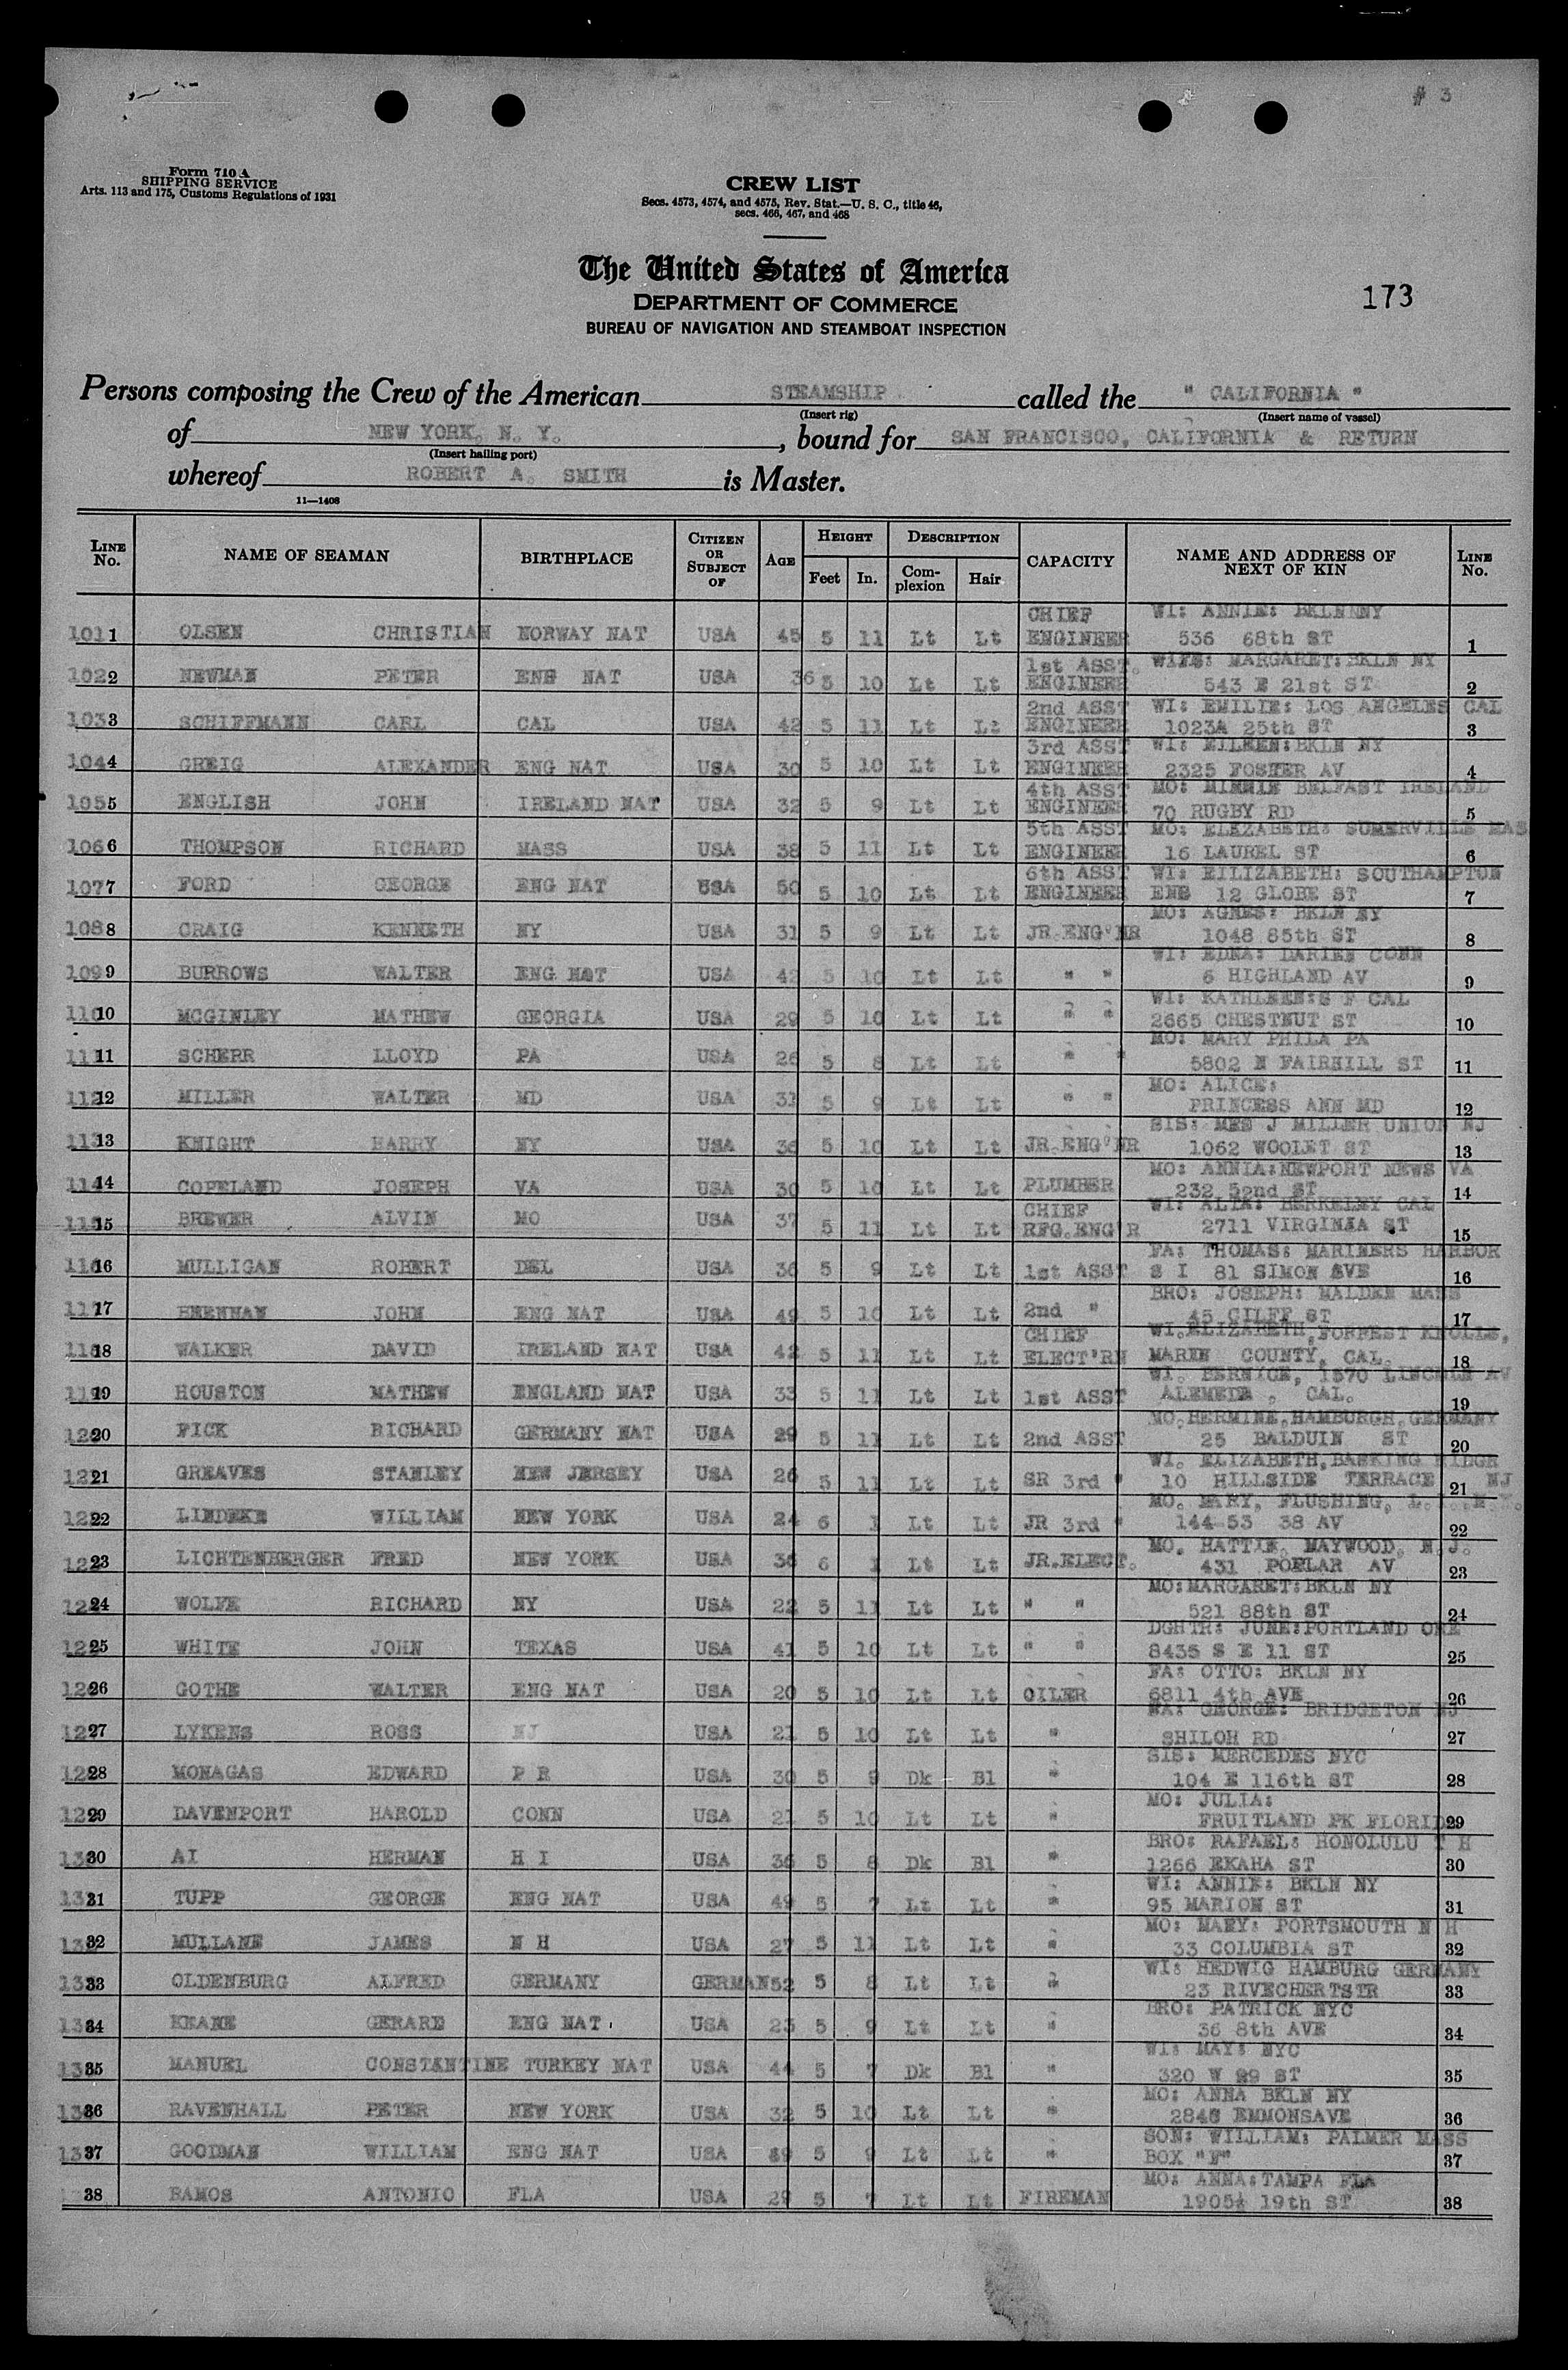 # 3
Form 710 A
SHIPPING SERVICE
Arts. 113 and 175, Customs Regulations of 1931
CREW LIST
Secs. 4573, 4574, and 4575, Rev. Stat.—U. S. C., title 46,
secs. 466, 467, and 468
The United States of America
DEPARTMENT OF COMMERCE
BUREAU OF NAVIGATION AND STEAMBOAT INSPECTION
173
Persons composing the Crew of the American STEAMSHIP called the " CALIFORNIA "
(Insert rig) (Insert name of vessel)
of NEW YORK, N. Y. , bound for SAN FRANCISCO, CALIFORNIA & RETURN
(Insert hailing port)
whereof ROBERT A. SMITH is Master.
11—1408
LINE No. NAME OF SEAMAN BIRTHPLACE CITIZEN OR SUBJECT OF AGE HEIGHT Feet In. DESCRIPTION Complexion Hair CAPACITY NAME AND ADDRESS OF NEXT OF KIN LINE No.
CHIEF WI: ANNIE: BKLN NY
1011 OLSEN CHRISTIAN NORWAY NAT USA 45 5 11 Lt Lt ENGINEER 536 68th ST 1
1st ASST. WIFE: MARGARET: BKLN NY
1022 NEWMAN PETER ENG NAT USA 36 5 10 Lt Lt ENGINEER 543 E 21st ST 2
2nd ASST WI: EMILIE: LOS ANGELES CAL
1033 SCHIFFMANN CARL CAL USA 42 5 11 Lt Lt ENGINEER 1023A 25th ST 3
3rd ASST WI: EILEEN: BKLN NY
1044 GREIG ALEXANDER ENG NAT USA 30 5 10 Lt Lt ENGINEER 2325 FOSTER AV 4
4th ASST MO: MINNIE BELFAST IRELAND
1055 ENGLISH JOHN IRELAND NAT USA 32 5 9 Lt Lt ENGINEER 70 RUGBY RD 5
5th ASST MO: ELIZABETH: SUMERVILLE MAS
1066 THOMPSON RICHARD MASS USA 38 5 11 Lt Lt ENGINEER 16 LAUREL ST 6
6th ASST WI: EILIZABETH: SOUTHAMPTON
1077 FORD GEORGE ENG NAT USA 50 5 10 Lt Lt ENGINEER ENG 12 GLOBE ST 7
MO: AGNES: BKLN NY
1088 CRAIG KENNETH NY USA 31 5 9 Lt Lt JR.ENG'NR 1048 85th ST 8
WI: EDNA: DARIEN CONN
1099 BURROWS WALTER ENG NAT USA 42 5 10 Lt Lt " " 6 HIGHLAND AV 9
WI: KATHLEEN: S F CAL
11010 MCGINLEY MATHEW GEORGIA USA 29 5 10 Lt Lt " " 2665 CHESTNUT ST 10
MO: MARY PHILA PA
11111 SCHERR LLOYD PA USA 26 5 8 Lt Lt " " 5802 N FAIRHILL ST 11
MO: ALICE:
11212 MILLER WALTER MD USA 31 5 9 Lt Lt " " PRINCESS ANN MD 12
SIS: MRS J MILLER UNION NJ
11313 KNIGHT HARRY NY USA 36 5 10 Lt Lt JR.ENG'NR 1062 WOOLET ST 13
MO: ANNIA: NEWPORT NEWS VA
11414 COPELAND JOSEPH VA USA 30 5 10 Lt Lt PLUMBER 232 52nd ST 14
CHIEF WI: ALTA: BERKELEY CAL
11515 BREWER ALVIN MO USA 37 5 11 Lt Lt RFG.ENG'R 2711 VIRGINIA ST 15
FA: THOMAS: MARINERS HARBOR
11616 MULLIGAN ROBERT DEL USA 36 5 9 Lt Lt 1st ASST S I 81 SIMON AVE 16
BRO: JOSEPH: MALDEN MASS
11717 BRENNAN JOHN ENG NAT USA 49 5 10 Lt Lt 2nd " 45 ST 17
CHIEF WI. ELIZABETH, FORREST KNOLLS,
11818 WALKER DAVID IRELAND NAT USA 42 5 11 Lt Lt ELECT'RN MARIN COUNTY, CAL. 18
WI. BERNICE, 1570 LINCOLN AV
11919 HOUSTON MATHEW ENGLAND NAT USA 33 5 11 Lt Lt 1st ASST ALEMEDA , CAL. 19
MO. HERMINE, HAMBURGH, GERMANY
12020 FICK RICHARD GERMANY NAT USA 29 5 11 Lt Lt 2nd ASST 25 BALDUIN ST 20
WI. ELIZABETH, BASKING RIDGE
12121 GREAVES STANLEY NEW JERSEY USA 26 5 11 Lt Lt SR 3rd " 10 HILLSIDE TERRACE NJ 21
MO. MARY, FLUSHING, L.I. N.Y.
12222 LINDEKE WILLIAM NEW YORK USA 24 6 1 Lt Lt JR 3rd " 144-53 38 AV 22
MO. HATTIE, MAYWOOD, N.J.
12323 LICHTENBERGER FRED NEW YORK USA 36 6 1 Lt Lt JR.ELECT. 431 POPLAR AV 23
MO: MARGARET: BKLN NY
12424 WOLFE RICHARD NY USA 22 5 11 Lt Lt " " 521 88th ST 24
DGHTR: JUNE: PORTLAND ORE
12525 WHITE JOHN TEXAS USA 41 5 10 Lt Lt " " 8435 S E 11 ST 25
FA: OTTO: BKLN NY
12626 GOTHE WALTER ENG NAT USA 20 5 10 Lt Lt OILER 6811 4th AVE 26
FA: GEORGE: BRIDGETON NJ
12727 LYKENS ROSS NJ USA 21 5 10 Lt Lt " SHILOH RD 27
SIS: MERCEDES NYC
12828 MONAGAS EDWARD P R USA 30 5 9 Dk Bl " 104 E 116th ST 28
MO: JULIA:
12929 DAVENPORT HAROLD CONN USA 21 5 10 Lt Lt " FRUITLAND PK FLORIDA 29
BRO: RAFAEL: HONOLULU T H
13030 AI HERMAN H I USA 36 5 8 Dk Bl " 1266 EKAHA ST 30
WI: ANNIE: BKLN NY
13131 TUPP GEORGE ENG NAT USA 49 5 7 Lt Lt " 95 MARION ST 31
MO: MARY: PORTSMOUTH N H
13232 MULLANE JAMES N H USA 27 5 11 Lt Lt " 33 COLUMBIA ST 32
WI: HEDWIG HAMBURG GERMANY
13333 OLDENBURG ALFRED GERMANY GERMAN 52 5 8 Lt Lt " 23 RIVECHERTSTR 33
BRO: PATRICK NYC
13434 KEANE GERARD ENG NAT USA 23 5 9 Lt Lt " 36 8th AVE 34
WI: MAY: NYC
13535 MANUEL CONSTANTINE TURKEY NAT USA 44 5 7 Dk Bl " 320 W 29 ST 35
MO: ANNA BKLN NY
13636 RAVENHALL PETER NEW YORK USA 32 5 10 Lt Lt " 2846 EMMONSAVE 36
SON: WILLIAM: PALMER MASS
13737 GOODMAN WILLIAM ENG NAT USA 49 5 9 Lt Lt " BOX "F" 37
MO: ANNA: TAMPA FLA
38 RAMOS ANTONIO FLA USA 29 5 7 Lt Lt FIREMAN 1905½ 19th ST 38